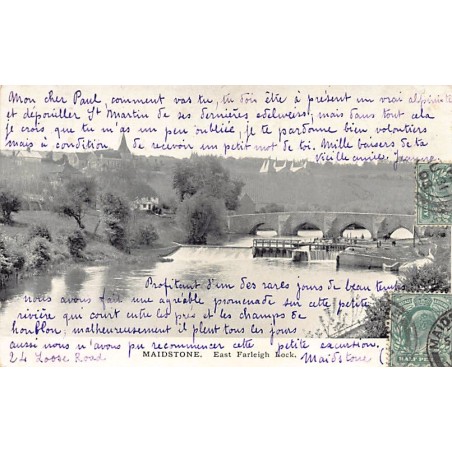 Mon cher Paul, comment vas tu, tu dois être à présent un vrai alpiniste
et dépouiller St Martin de ses dernières edelweiss, mais dans tout cela
je crois, que tu m'as un peu oubliée, je te pardonne bien volontiers
mais à condition de recevoir un petit mot de toi. Mille baisers de ta
vieille amie, Jeanne
Profitant d'un des rares jours de beau temps
nous avons fait une agréable promenade sur cette petite
rivière qui court entre les prés et les champs de
houblon, malheureusement il pleut tous les jours
aussi nous n'avons pu recommencer cette petite excursion.
MAIDSTONE. East Farleigh Lock.
24 Loose Road Maidstone (
HALF PENNY